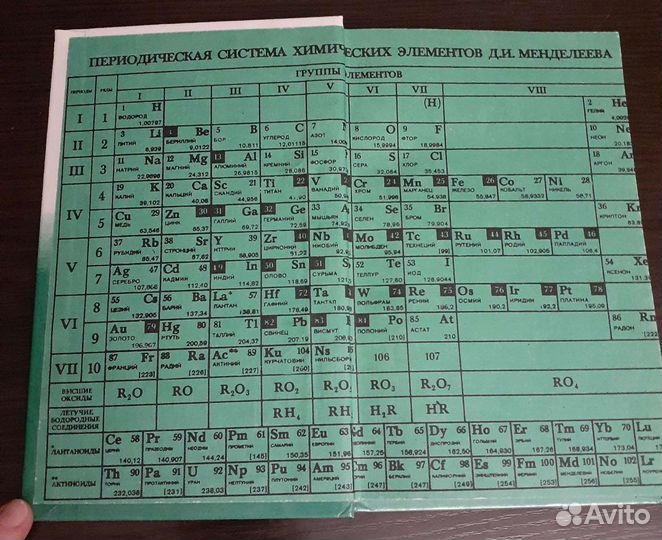 ПЕРИОДИЧЕСКАЯ СИСТЕМА ХИМИЧЕСКИХ ЭЛЕМЕНТОВ Д.И. МЕНДЕЛЕЕВА
ГРУППЫ ЭЛЕМЕНТОВ
ПЕРИОДЫ РЯДЫ I II III IV V VI VII VIII
I 1 1 H ВОДОРОД 1,00797 (H) 2 He ГЕЛИЙ
II 2 3 Li ЛИТИЙ 6,939 Be БЕРИЛЛИЙ 9,0122 5 B БОР 10,811 6 C УГЛЕРОД 12,01115 7 АЗОТ 8 O КИСЛОРОД 15,9994 9 F ФТОР 18,9984 10 Ne НЕОН
III 3 11 Na НАТРИЙ 22,9898 12 Mg МАГНИЙ 24,312 13 Al АЛЮМИНИЙ 26,9815 14 Si КРЕМНИЙ 28,086 15 ФОСФОР 16 S СЕРА 32,064 17 Cl ХЛОР 35,453 18 Ar АРГОН
IV 4 19 K КАЛИЙ 39,102 20 Ca КАЛЬЦИЙ 40,08 Sc 21 СКАНДИЙ 44,956 Ti 22 ТИТАН 47,90 V 23 ВАНАДИЙ Cr 24 ХРОМ 51,996 Mn 25 МАРГАНЕЦ 54,938 Fe 26 ЖЕЛЕЗО 55,847 Co 27 КОБАЛЬТ 58,9332 Ni 28 НИКЕЛЬ 58,71
5 Cu 29 МЕДЬ 63,546 Zn 30 ЦИНК 65,37 31 Ga ГАЛЛИЙ 69,72 32 Ge ГЕРМАНИЙ 72,59 33 МЫШЬЯК 34 Se СЕЛЕН 78,96 35 Br БРОМ 79,904 36 Kr КРИПТОН
V 6 37 Rb РУБИДИЙ 85,47 38 Sr СТРОНЦИЙ 87,62 39 ИТТРИЙ 88,905 Zr 40 ЦИРКОНИЙ 91,22 Nb НИОБИЙ Mo 42 МОЛИБДЕН 95,94 Tc 43 ТЕХНЕЦИЙ Ru 44 РУТЕНИЙ 101,07 Rh 45 РОДИЙ 102,905 Pd 46 ПАЛЛАДИЙ
7 Ag 47 СЕРЕБРО Cd 48 КАДМИЙ 112,40 In ИНДИЙ 114,82 50 Sn ОЛОВО 118,69 51 СУРЬМА 52 Te ТЕЛЛУР 127,60 53 I ИОД 126,9044 54 Xe КСЕНОН
VI 8 55 Cs ЦЕЗИЙ 132,905 56 Ba БАРИЙ 137,34 La* 57 ЛАНТАН 138,81 Hf 72 ГАФНИЙ 178,49 Ta ТАНТАЛ W 74 ВОЛЬФРАМ 183,85 Re 75 РЕНИЙ 186,2 Os 76 ОСМИЙ 190,2 Ir 77 ИРИДИЙ 192,2 Pt 78 ПЛАТИНА 195,09
9 Au 79 ЗОЛОТО 196,967 Hg 80 РТУТЬ 200,59 81 Tl ТАЛЛИЙ 204,37 82 Pb СВИНЕЦ 207,19 83 ВИСМУТ 84 Po ПОЛОНИЙ [210] 85 At АСТАТ 210 86 Rn РАДОН
VII 10 87 Fr ФРАНЦИЙ [223] 88 Ra РАДИЙ [226] Ac** 89 АКТИНИЙ [227] Ku 104 КУРЧАТОВИЙ Ns НИЛЬСБОРИЙ 106 107
ВЫСШИЕ ОКСИДЫ R₂O RO R₂O₃ RO₂ RO₃ R₂O₇ RO₄
ЛЕТУЧИЕ ВОДОРОДНЫЕ СОЕДИНЕНИЯ RH₄ RH H₂R HR
* ЛАНТАНОИДЫ Ce 58 ЦЕРИЙ 140,12 Pr 59 ПРАЗЕОДИМ 140,907 Nd 60 НЕОДИМ 144,24 Pm 61 ПРОМЕТИЙ [145] Sm 62 САМАРИЙ 150,35 Eu ЕВРОПИЙ 151,96 64 157,25 Tb 65 ТЕРБИЙ 158,924 Dy 66 ДИСПРОЗИЙ 162,50 Ho 67 ГОЛЬМИЙ 164,930 Er 68 ЭРБИЙ 167,26 Tm 69 ТУЛИЙ 168,934 Yb 70 ИТТЕРБИЙ 173,04 Lu
** АКТИНОИДЫ Th 90 ТОРИЙ 232,038 Pa 91 ПРОТАКТИНИЙ [231] U 92 УРАН 238,03 Np 93 НЕПТУНИЙ [237] Pu 94 ПЛУТОНИЙ [242] Am АМЕРИЦИЙ Cm 96 [247] Bk 97 БЕРКЛИЙ [247] Cf 98 КАЛИФОРНИЙ [249] Es 99 ЭЙНШТЕЙНИЙ [254] Fm 100 ФЕРМИЙ [253] Md 101 МЕНДЕЛЕВИЙ [256] No 102 [255] Lr
Avito